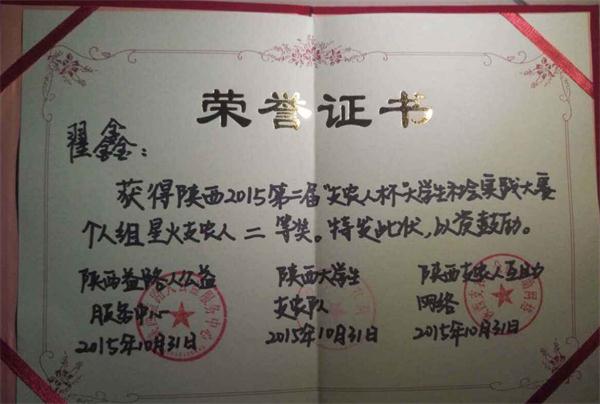 荣誉证书
翟鑫：
获得陕西2015第二届"支农人杯"大学生社会实践大赛
个人组星火支农人二等奖。特发此状，以资鼓励。
陕西益路人公益
服务中心
2015年10月31日
陕西大学生
支农队
2015年10月31日
陕西支农人互助
网络
2015年10月31日